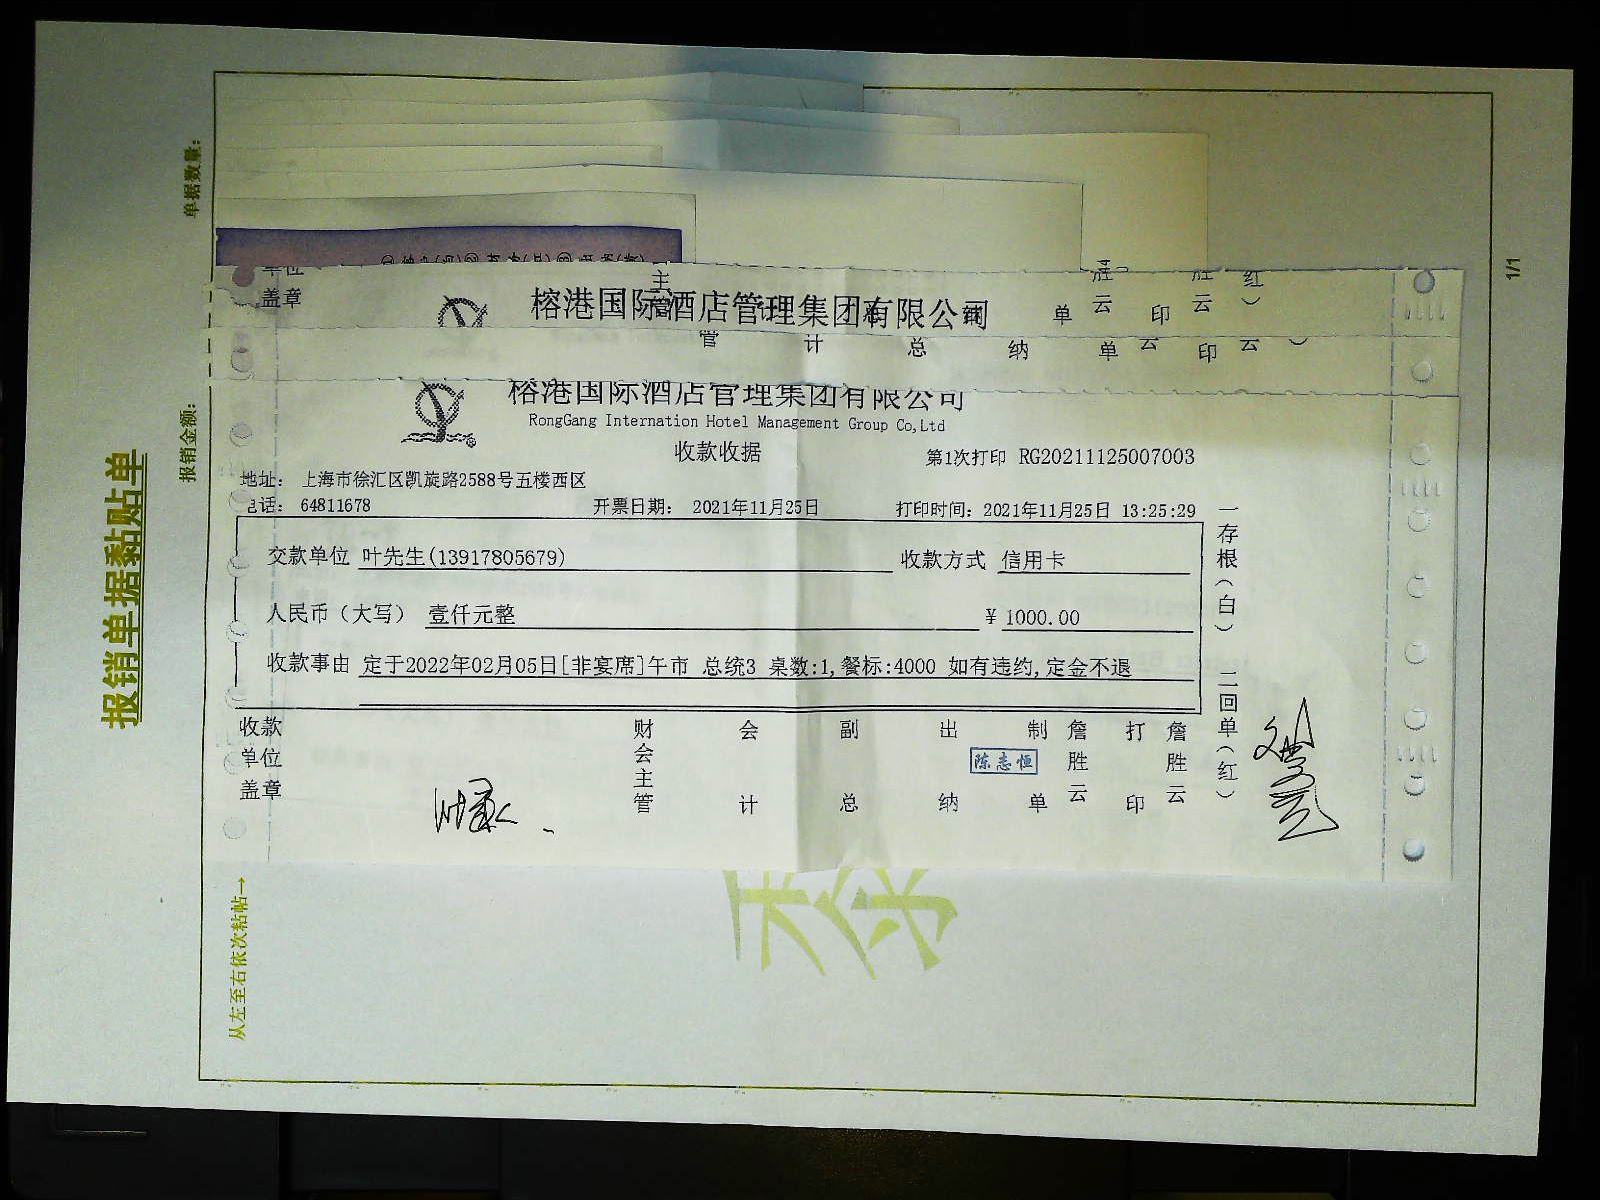 报销单据黏贴单
报销金额：
单据数量：
从左至右依次粘帖→
1/1
单位
盖章
主
管 计 总 纳 单 云 印 云
胜 胜 红）
榕港国际酒店管理集团有限公司
管 计 总 纳 单 云 印 云 ）
榕港国际酒店管理集团有限公司
RongGang Internation Hotel Management Group Co,Ltd
收款收据
第1次打印 RG20211125007003
地址： 上海市徐汇区凯旋路2588号五楼西区
电话： 64811678 开票日期： 2021年11月25日 打印时间：2021年11月25日 13:25:29
交款单位 叶先生(13917805679) 收款方式 信用卡
人民币（大写） 壹仟元整 ￥1000.00
收款事由 定于2022年02月05日[非宴席]午市 总统3 桌数:1,餐标:4000 如有违约,定金不退
一存根（白） 二回单（红）
收款单位盖章 财会主管 会计 副总 出纳 陈志恒 制单 詹胜云 打印 詹胜云